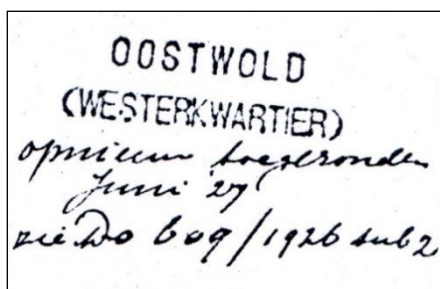 OOSTWOLD
(WESTERKWARTIER)
opnieuw toegezonden
Juni 27
zie Do 609/1926 sub 2